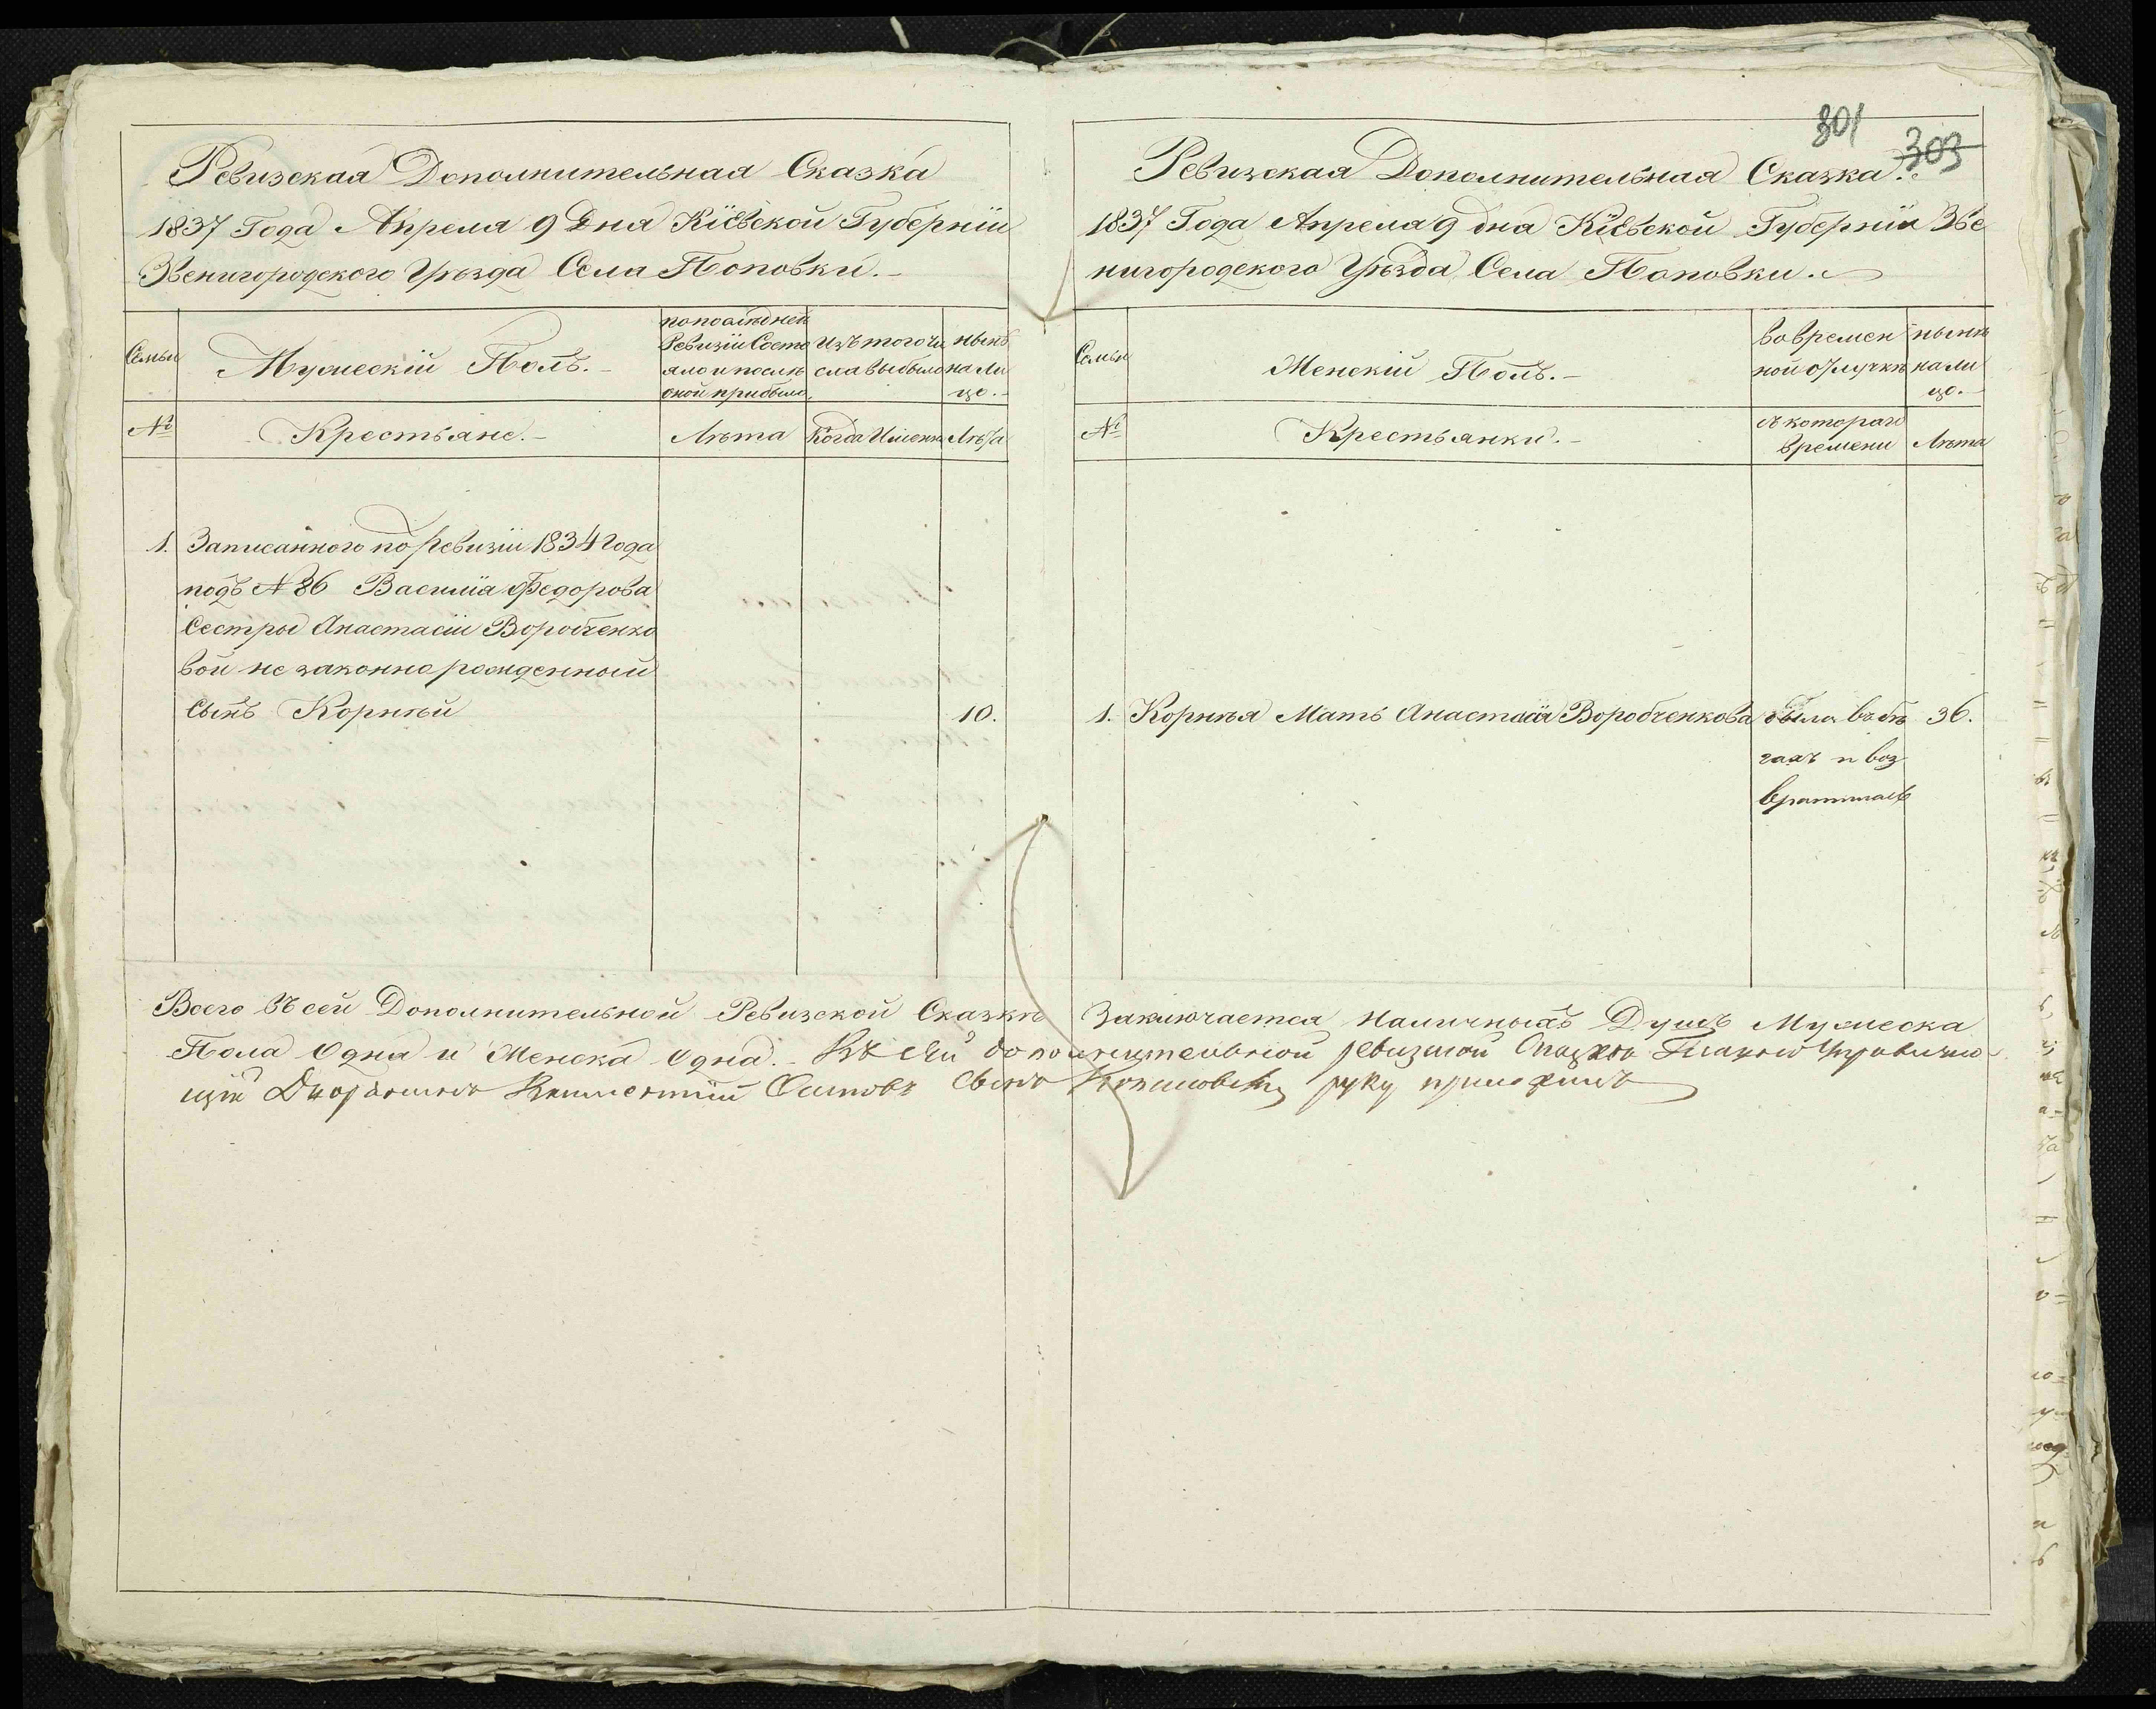 Ревизская Дополнительная Сказка
1837 Года Апреля 9 Дня Кіевской Губерніи
Звенигородского Уѣзда Села Поповки.-
Семьи
Мужескій Полъ.-
попослѣдней
Ревизіи Состо
яло и послѣ
оной прибыло.
Изъ того чи
сла выбыло
нынѣ
на ли
цо.-
№
Крестьяне.-
Лѣта
Когда Именно
Лѣта
1. Записанного по ревизіи 1834 года
подъ № 86 Василія Федорова
Сестры Анастасіи Воробченко
вой не законно рожденный
Сынъ Корнѣй 10.
801
303
Ревизская Дополнительная Сказка.
1837 Года Апреля 9 дня Кіевской Губерніи Зве
нигородского Уѣзда Села Поповки.
Семьи
Женскій Полъ.-
вовремен
ной отлучкѣ
нынѣ
на ли
цо.-
№
Крестьянки.-
съ котораго
времени
Лѣта
1. Корнѣя Мать Анастасія Воробченкова была въ бѣ 36.
гахъ и воз
вратилась
Всего въ сей Дополнительной Ревизской Сказкѣ Заключается Наличныхъ Душъ Мужеска
Пола Одна и Женска Одна.- Къ сей дополнительной ревизкой Сказкѣ Управляю
щій Дворянинъ Осиповъ Сынъ руку приложилъ